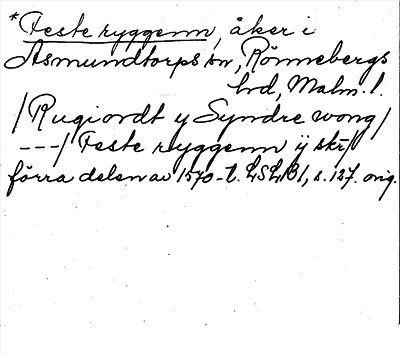 *Feste ryggenn, åker i
Asmundtorps sn, Rönnebergs
hd, Malm. l.
/Rugiordt y Syndre wong/
---/Feste ryggenn ÿ skr/
förra delen av 1570-t. LSLB1, s. 127. orig.